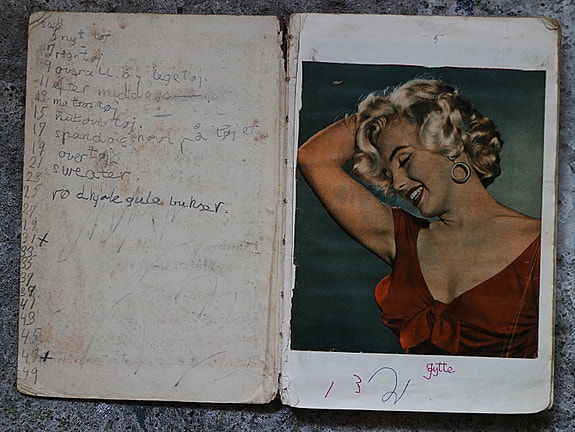 5 nyt tøj
7 regntøj
9 overall og legetøj.
11 efter middags
13 matrostøj
15 natovertøj.
17 spand og skovl på tøjet
19
overtøj
21 sweater.
23
25 rød kjole gule bukser.
27
29
31 x
33
35
37
39
41
43
45
47 x
49
5
gytte
1 3 2